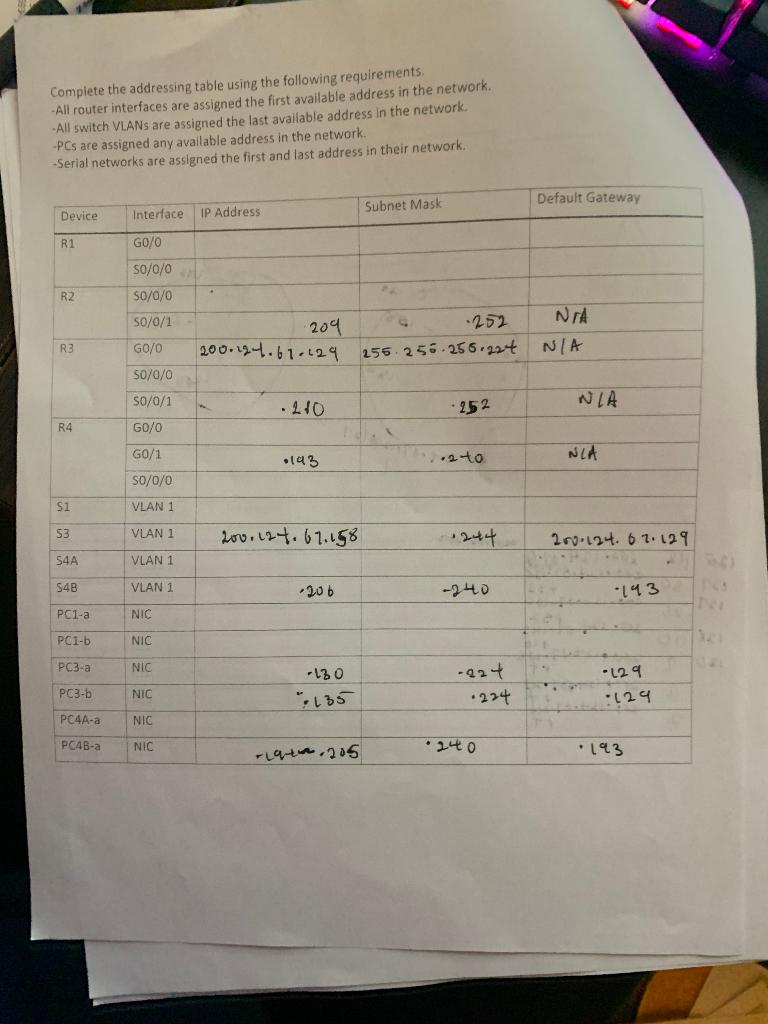 Complete the addressing table using the following requirements.
-All router interfaces are assigned the first available address in the network.
-All switch VLANs are assigned the last available address in the network.
-PCs are assigned any available address in the network.
-Serial networks are assigned the first and last address in their network.
Device Interface IP Address Subnet Mask Default Gateway
R1 G0/0
S0/0/0
R2 S0/0/0
S0/0/1 .209 .252 N/A
R3 G0/0 200.124.67.129 255.255.255.224 N/A
S0/0/0
S0/0/1 .210 .252 N/A
R4 G0/0
G0/1 .193 .240 N/A
S0/0/0
S1 VLAN 1
S3 VLAN 1 200.124.67.158 .244 200.124.67.129
S4A VLAN 1
S4B VLAN 1 .206 -240 .193
PC1-a NIC
PC1-b NIC
PC3-a NIC .130 .224 .129
PC3-b NIC .135 .224 .129
PC4A-a NIC
PC4B-a NIC .205 .240 .193